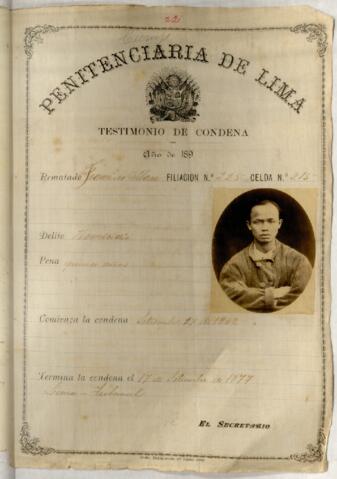 22
PENITENCIARIA DE LIMA
TESTIMONIO DE CONDENA
Año de 189
Rematado Francisco FILIACION N.º 225 CELDA N.º 215
Delito Homicidio
Pena quince años
Comienza la condena Setiembre 17 de 1862
Termina la condena el 17 de Setiembre de 1877
Lima - Tribunal
EL SECRETARIO